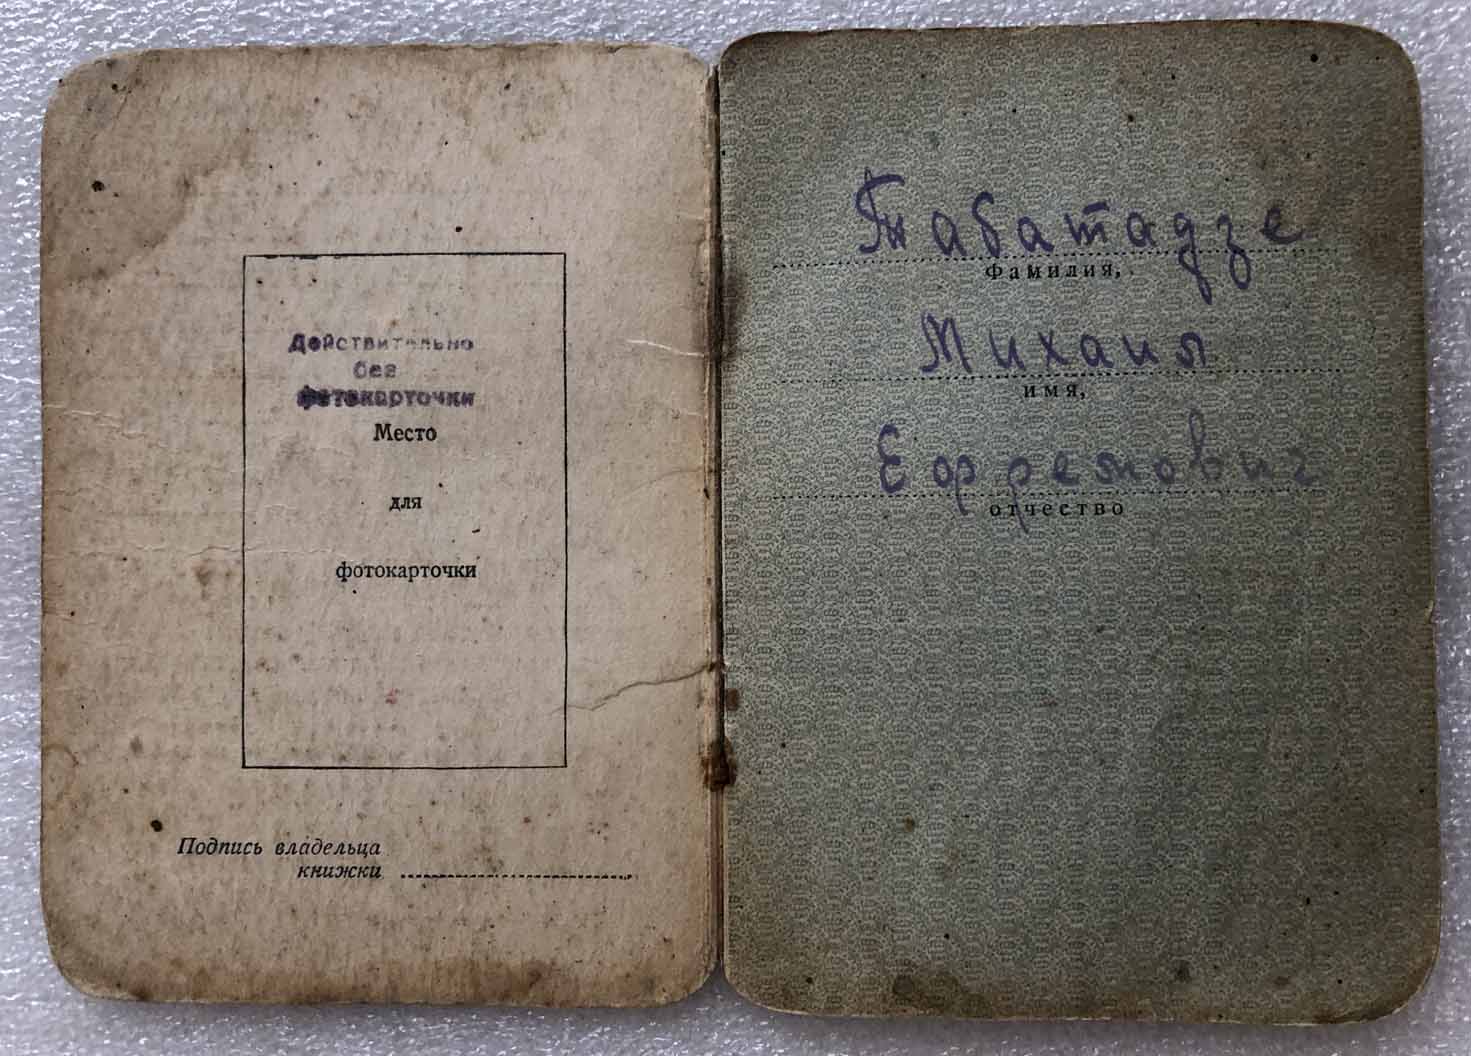 Действительно
без
фотокарточки
Место
для
фотокарточки
Подпись владельца
книжки
Табатадзе
Фамилия,
Михаил
имя,
Ефремович
отчество